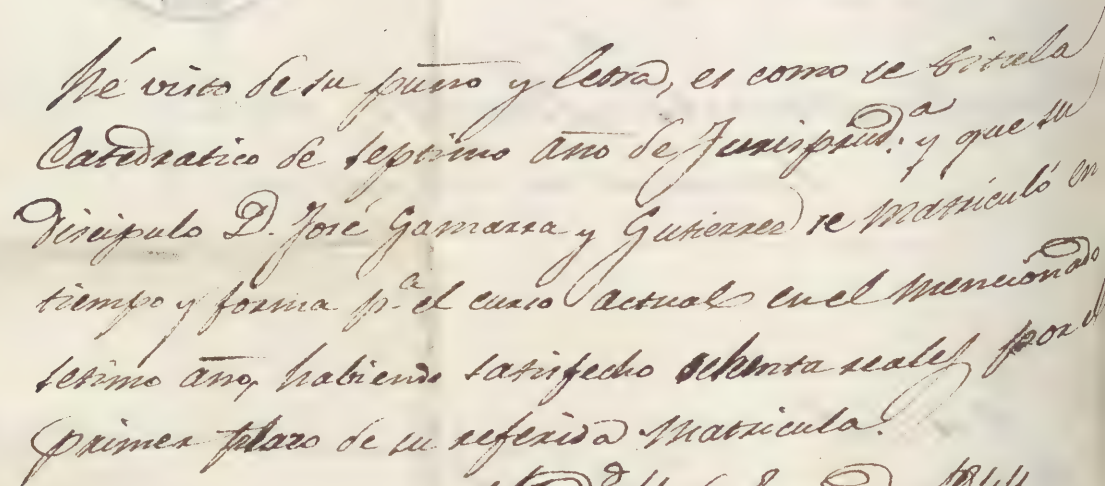 hé visto de su puño y letra, es como se titula
Catedratico de septimo año de Jurisprud.ª y que su
Discipulo D. José Gamarra y Gutierrez se Matriculó en
tiempo y forma p.ª el curso actual en el mencionado
setimo año, habiendo satisfecho ochenta reales por el
primer plazo de su referida Matricula.